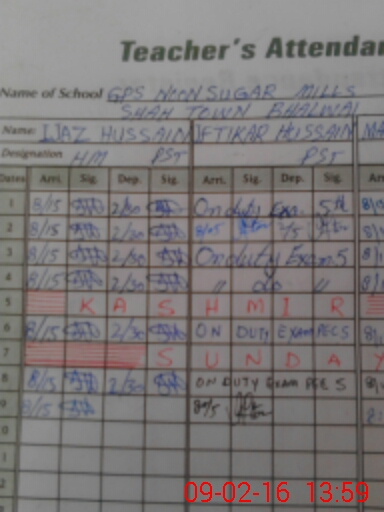 Teacher's Attendan
Name of School GPS NOON SUGAR MILLS
SHAH TOWN BHALWAL
Name: IJAZ HUSSAIN IFTIKAR HUSSAIN MA
Designation HM PST PST
Dates Arri. Sig. Dep. Sig. Arri. Sig. Dep. Sig. Arr
1 8/15 2/30 On duty Exa. 5th 8/
2 8/15 2/30 8/15
3 8/15 2/30 On duty Exam 5
4 8/15 2/30 " do "
5 K A S H M I R
6 8/15 2/30 ON DUTY EXAM PEC 5
7 S U N D A Y
8 8/15 2/30 ON DUTY EXAM PEC 5
9 8/15
0
1
2
09-02-16 13:59